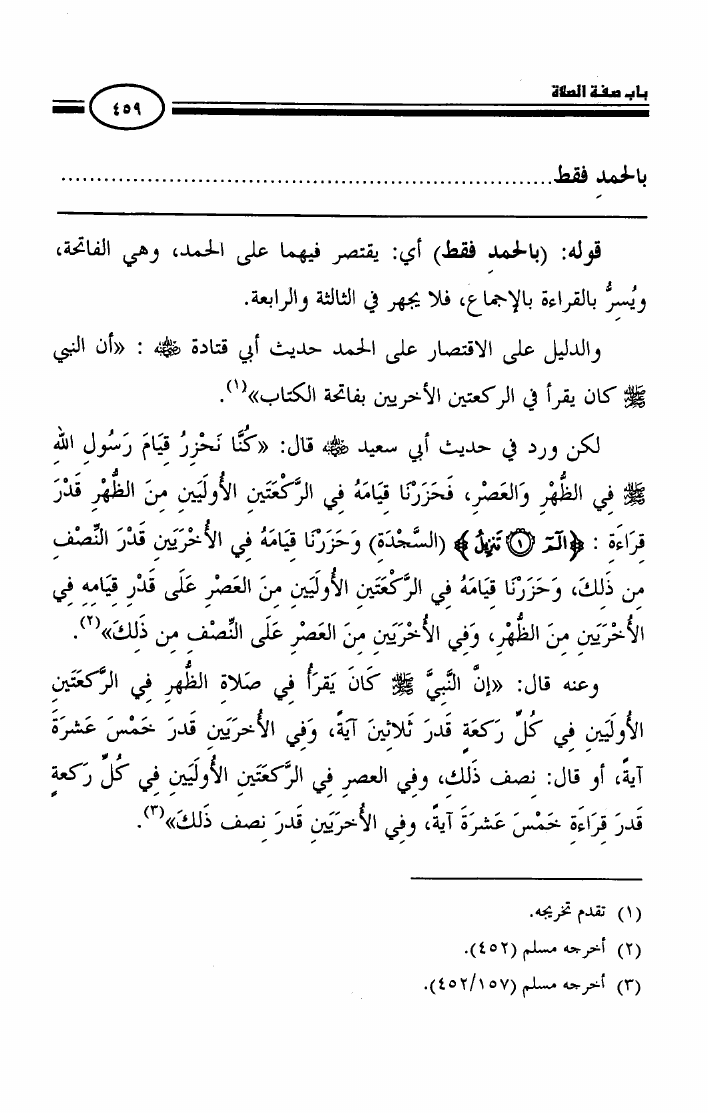 باب صفة الصلاة
٤٥٩
بالحمدِ فقط................................................................
قوله: (بالحمدِ فقط) أي: يقتصر فيهما على الحمد، وهي الفاتحة،
ويُسِرُّ بالقراءة بالإجماع، فلا يجهر في الثالثة والرابعة.
والدليل على الاقتصار على الحمد حديث أبي قتادة ﵁ : «أن النبي
ﷺ كان يقرأ في الركعتين الأخريين بفاتحة الكتاب»(١).
لكن ورد في حديث أبي سعيد ﵁ قال: «كُنَّا نَحْزِرُ قِيَامَ رَسُولِ اللهِ
ﷺ فِي الظُّهْرِ وَالعَصْرِ، فَحَزَرْنَا قِيَامَهُ فِي الرَّكْعَتَينِ الأُولَيَينِ مِنَ الظُّهْرِ قَدْرَ
قِرَاءَةِ : ﴿الٓمٓ ۝١ تَنزِيلُ﴾ (السَّجْدَةِ) وَحَزَرْنَا قِيَامَهُ فِي الأُخْرَيَينِ قَدْرَ النِّصْفِ
مِن ذَلِكَ، وَحَزَرْنَا قِيَامَهُ فِي الرَّكْعَتَينِ الأُولَيَينِ مِنَ العَصْرِ عَلَى قَدْرِ قِيَامِهِ فِي
الأُخْرَيَينِ مِنَ الظُّهْرِ، وَفِي الأُخْرَيَينِ مِنَ العَصْرِ عَلَى النِّصْفِ مِن ذَلِكَ»(٢).
وعنه قال: «إنَّ النَّبِيَّ ﷺ كَانَ يَقرَأُ فِي صَلاةِ الظُّهرِ فِي الرَّكعَتَينِ
الأُولَيَينِ فِي كُلِّ رَكعَةٍ قَدرَ ثَلاثِينَ آيَةً، وَفِي الأُخرَيَينِ قَدرَ خَمْسَ عَشرَةَ
آيةً، أو قال: نِصف ذلك، وفِي العصرِ فِي الرَّكعَتَينِ الأُولَيَينِ فِي كُلِّ رَكعةٍ
قَدرَ قِرَاءَةِ خَمْسَ عَشرَةَ آيةً، وفِي الأُخرَيَينِ قَدرَ نِصف ذلكَ»(٣).
(١) تقدم تخريجه.
(٢) أخرجه مسلم (٤٥٢).
(٣) أخرجه مسلم (٤٥٢/١٥٧).